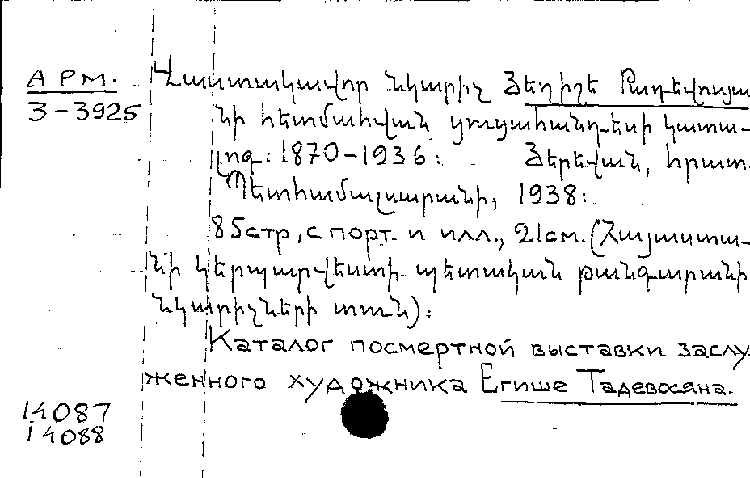 АРМ. Վաստակավոր նկարիչ Յեղիշե Թադևոսյա-
3-3925 նի հետմահվան ցուցահանդեսի կատա-
լոգ: 1870-1936: Յերեվան, հրատ.
Պետհամալսարանի, 1938:
85стр, с порт. и илл., 21см. (Հայաստա-
նի կերպարվեստի պետական թանգարանի
նկարիչների տուն):
Каталог посмертной выставки заслу
женного художника Егише Тадевосяна.
14087
14088